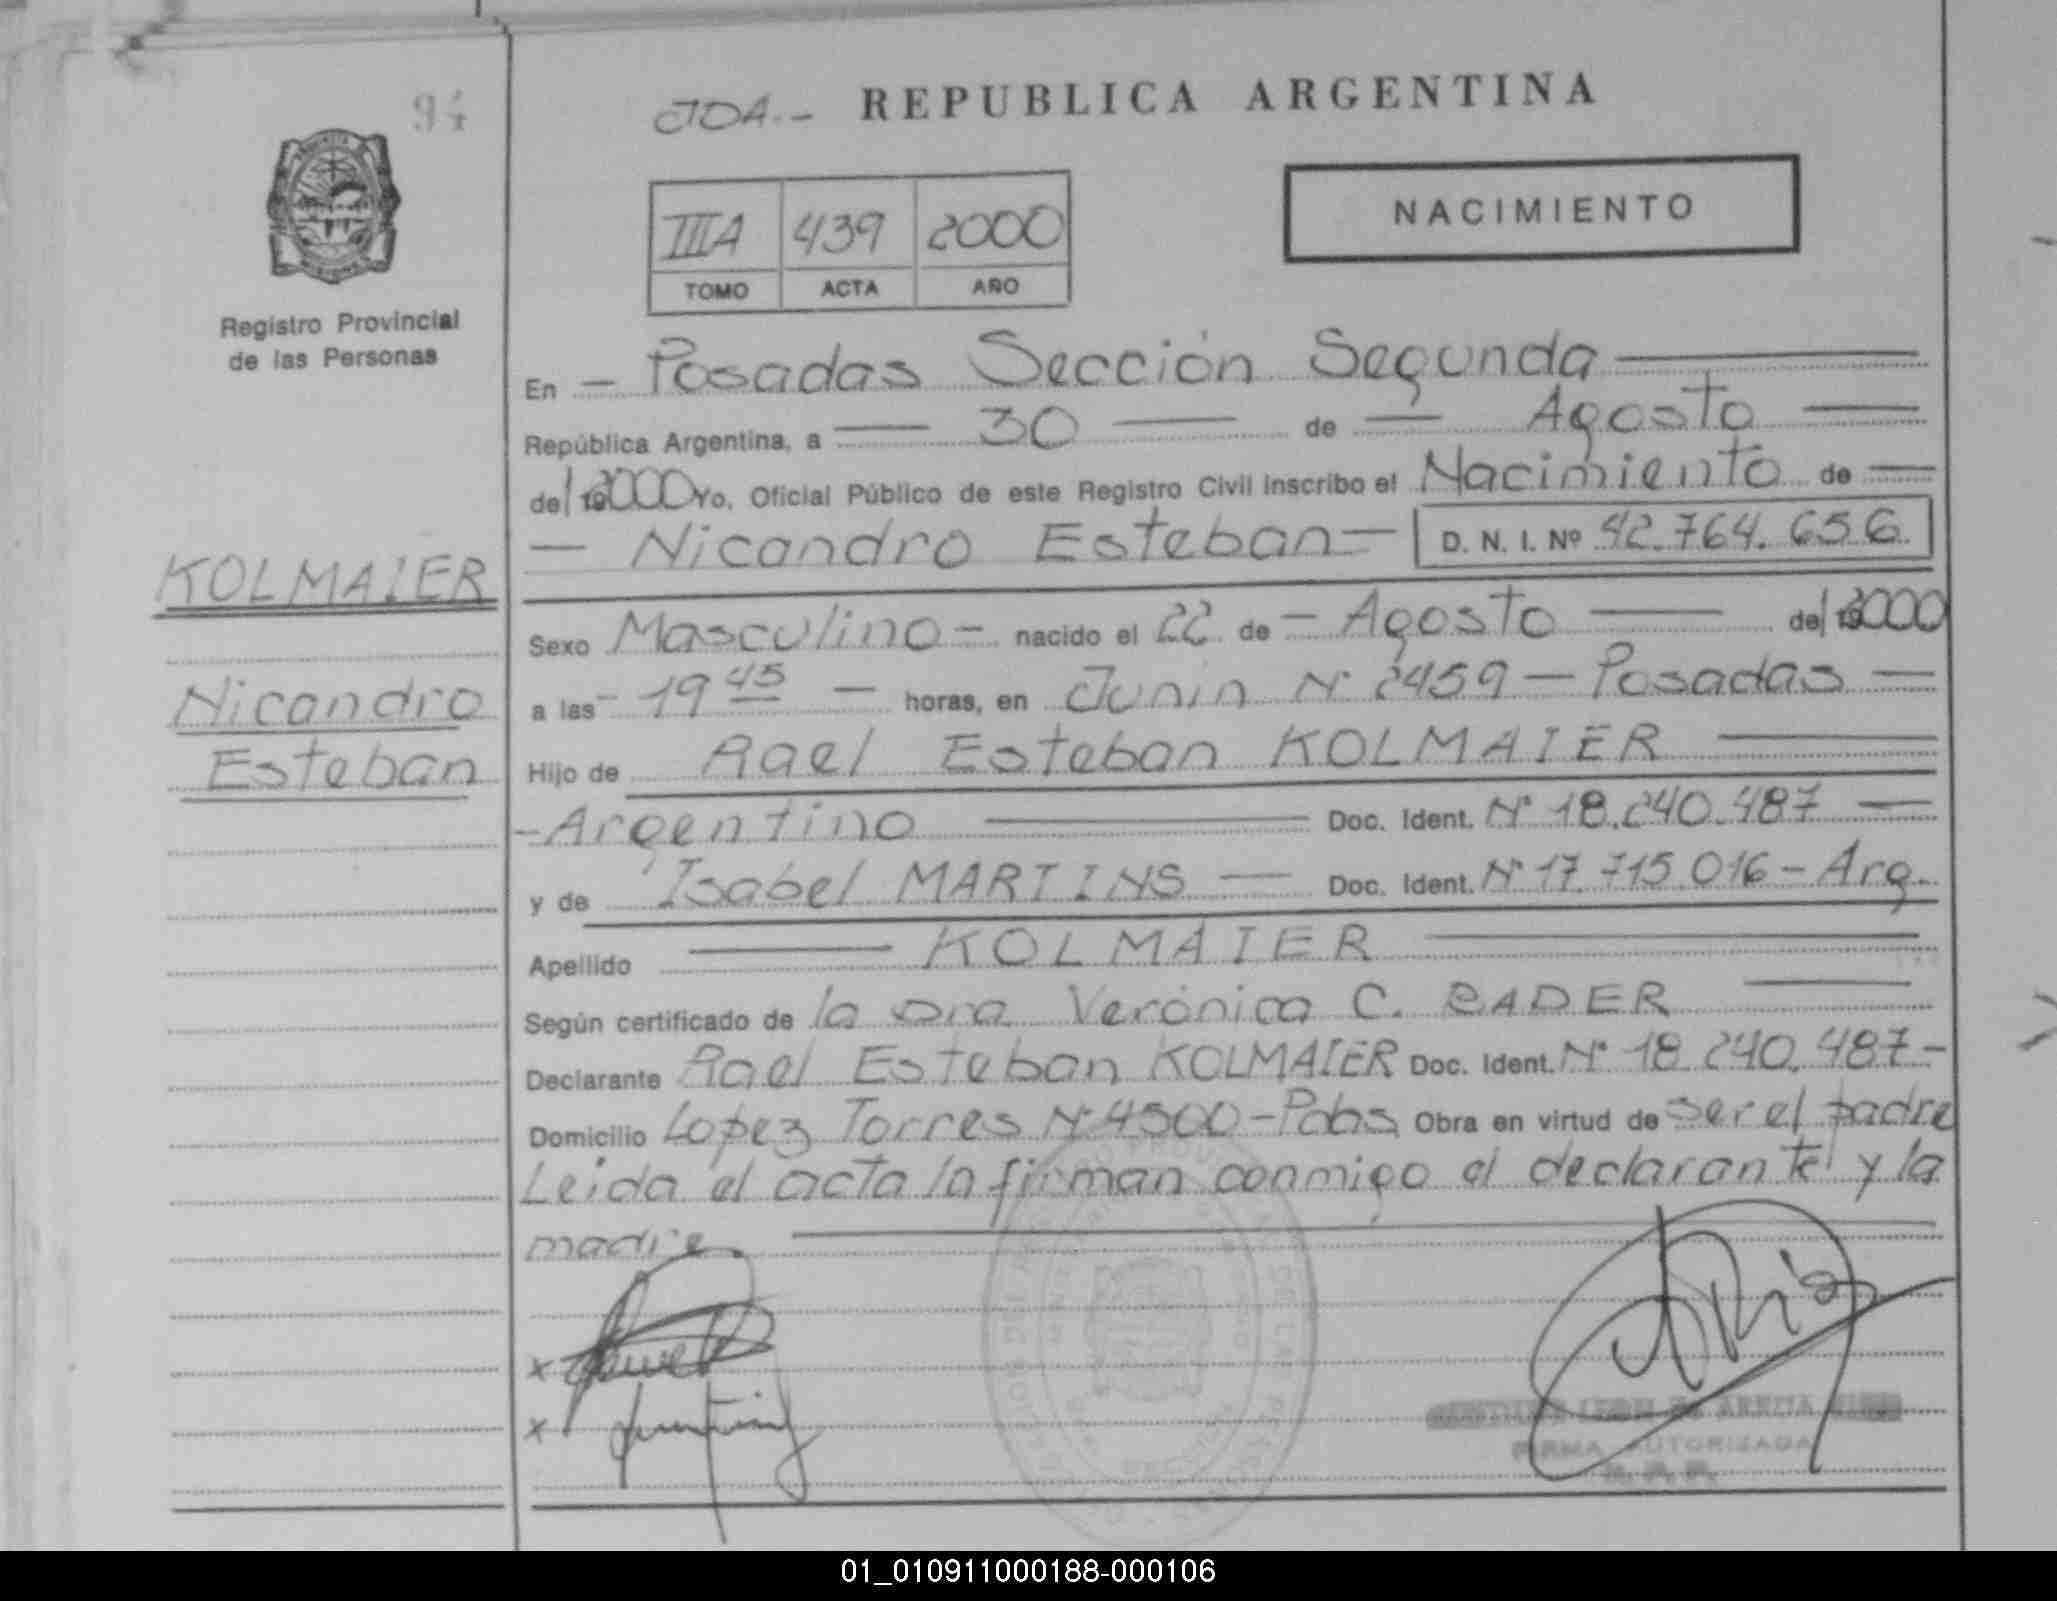 94
JOA.- REPUBLICA ARGENTINA
IIIA 439 2000
TOMO ACTA AÑO
NACIMIENTO
Registro Provincial
de las Personas
En — Posadas Sección Segunda
República Argentina, a — 30 — de — Agosto —
del 2000 Yo, Oficial Público de este Registro Civil inscribo el Nacimiento de —
— Nicandro Esteban — D. N. I. Nº 42.764.656
KOLMAIER
Nicandro
Esteban
Sexo Masculino - nacido el 22 de - Agosto — del 2000
a las - 19 45 — horas, en Junín Nº 2459 — Posadas —
Hijo de Rael Esteban KOLMAIER —
- Argentino — Doc. Ident. Nº 18.240.487 —
y de Isabel MARTINS — Doc. Ident. Nº 17.715.016 - Arg.
Apellido — KOLMAIER —
Según certificado de la Dra Verónica C. RADER —
Declarante Rael Esteban KOLMAIER Doc. Ident. Nº 18.240.487 -
Domicilio Lopez Torres Nº 4500 - Pdas Obra en virtud de ser el padre
Leida el acta la firman conmigo el declarante y la
madre. —
FIRMA AUTORIZADA
01_010911000188-000106